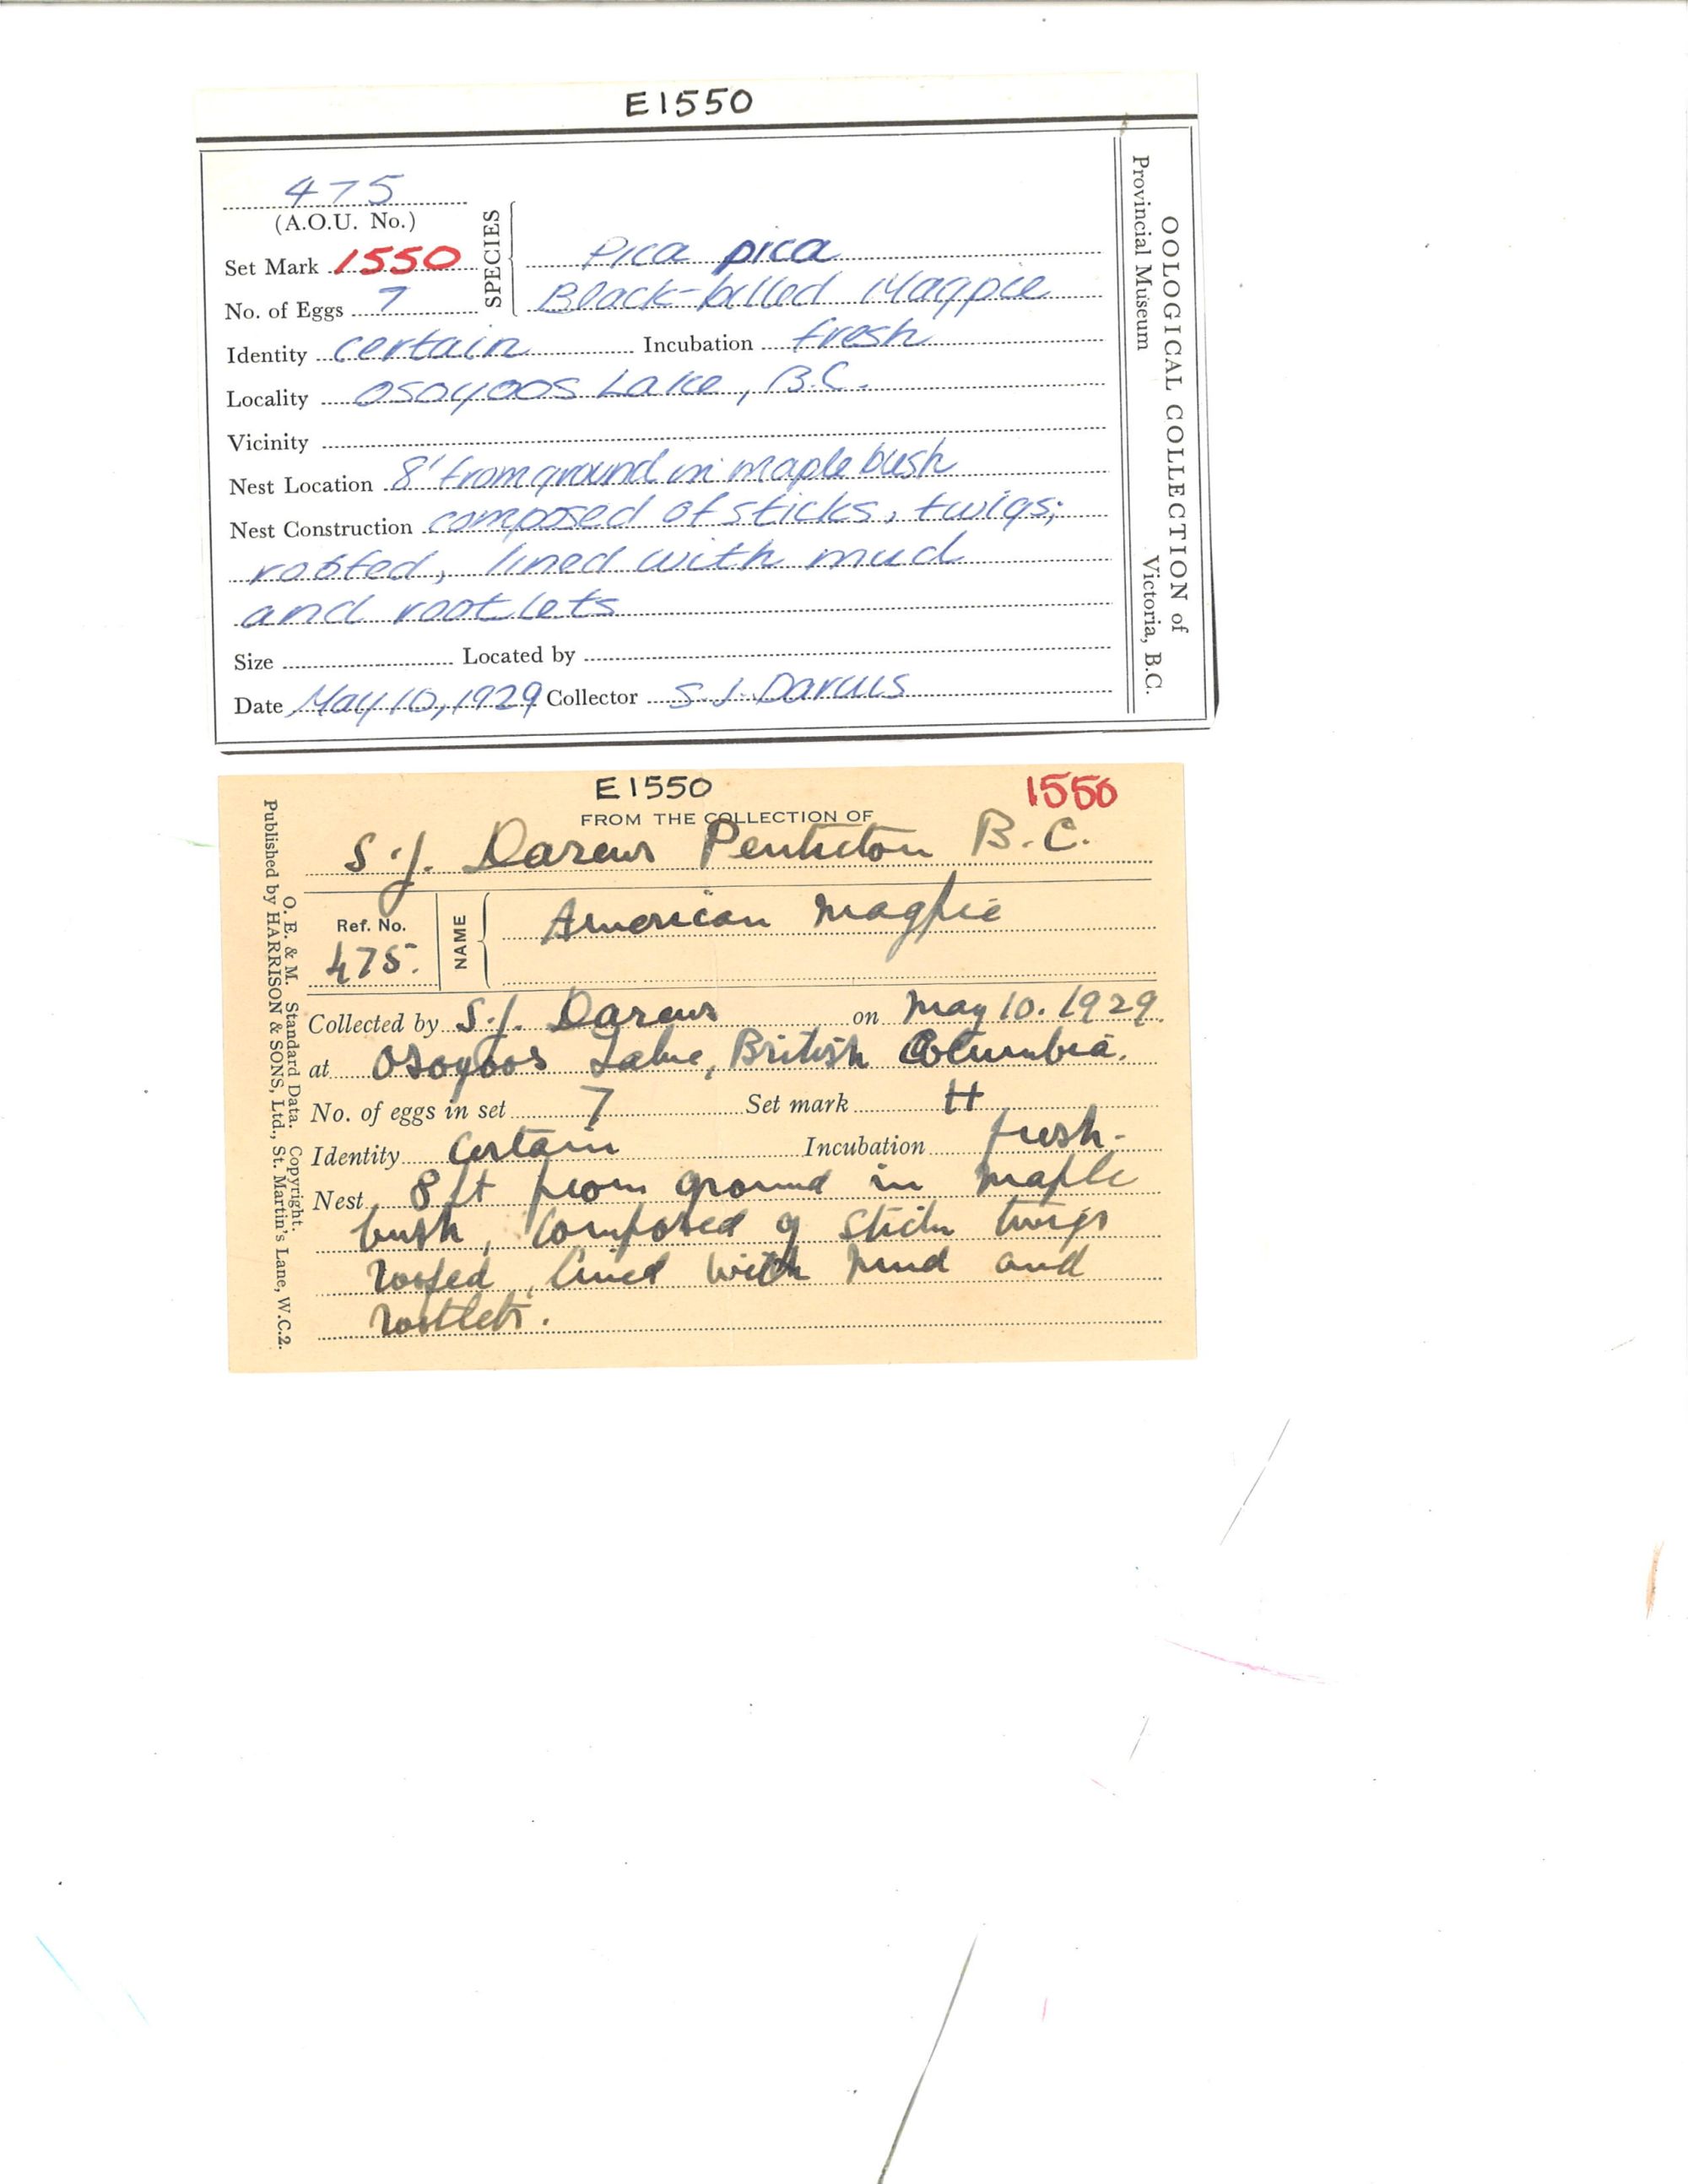 E1550
475
(A.O.U. No.)
SPECIES
Set Mark 1550
Pica pica
No. of Eggs 7
Black-billed Magpie
Identity certain Incubation fresh
Locality Osoyoos Lake, B.C.
Vicinity
Nest Location 8' from ground in maple bush
Nest Construction composed of sticks, twigs;
roofed, lined with mud
and rootlets
Size Located by
Date May 10, 1929 Collector S.J. Darcus
OOLOGICAL COLLECTION of
Provincial Museum Victoria, B.C.
E1550 1550
FROM THE COLLECTION OF
S.J. Darcus Penticton B.C.
Ref. No.
475.
NAME
American Magpie
Collected by S.J. Darcus on May 10. 1929.
at Osoyoos Lake, British Columbia.
No. of eggs in set 7 Set mark H
Identity Certain Incubation fresh.
Nest 8 ft from ground in maple
bush, composed of sticks twigs
roofed, lined with mud and
rootlets.
O. E. & M. Standard Data. Copyright.
Published by HARRISON & SONS, Ltd., St. Martin's Lane, W.C.2.